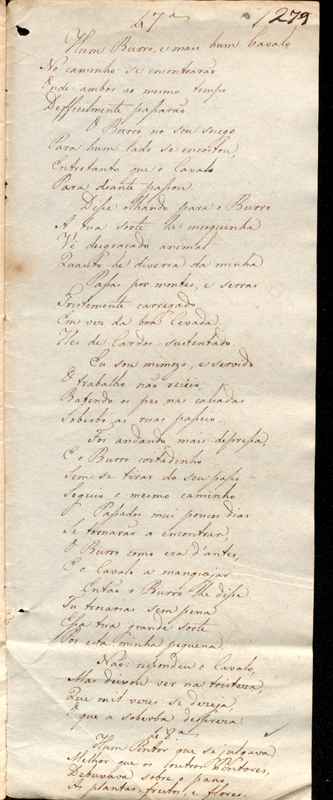 27ª
279
Hum Burro, e mais hum Cavalo
No caminho se encontrarão
Onde ambos ao mesmo tempo
Defficilmente passarão
O Burro no seu socego
Para hum lado se encostou,
Entretanto que o Cavalo
Para deante passou.
Disse olhando para o Burro
A tua sorte he mesquinha
Vé desgraçado animal
Quanto he diversa da minha
Passas por montes, e serras
Fortemente carregado
Em vez da boa Cevada
Hes de Cardos sustentado
Eu sou mimozo, e servido
O trabalho não receio
Batendo os pes nas calçadas
Soberbo as ruas passeio.
Foi andando mais depressa
E o Burro coitadinho
Sem se tirar do seu passo
Seguio o mesmo caminho
Passados mui poucos dias
Se tornarão a encontrar,
O Burro como era d'antes,
E o Cavalo a manquejar
Então o Burro lhe disse
Tu trocarias sem pena
Essa tua grande sorte
Por esta minha pequena.
Não: respondeu o Cavalo,
Mas deixou ver na tristeza,
Que mil vezes se dezeja,
O que a soberba despreza
28ª
Hum Pintor que se julgava
Melhor que os outros Pintores,
Debuxava sobre o pano,
As plantas, frutos, e flores.